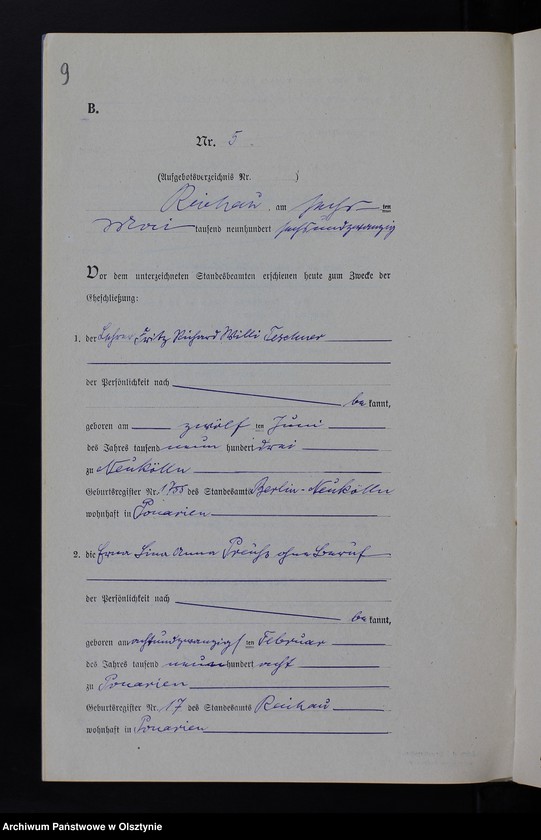 9
B.
Nr. 5.
(Aufgebotsverzeichnis Nr. )
Reichau, am sechsten
Mai tausend neunhundert sechsundzwanzig
Vor dem unterzeichneten Standesbeamten erschienen heute zum Zwecke der
Eheschließung:
1. der Lehrer Fritz Richard Willi Teschner
der Persönlichkeit nach
bekannt,
geboren am zwölften Juni
des Jahres tausend neunhundert drei
zu Neukölln
Geburtsregister Nr. des Standesamts Berlin-Neukölln
wohnhaft in Ponarien
2. die Erna Lina Anna Preuß ohne Beruf
der Persönlichkeit nach
bekannt,
geboren am achtundzwanzigsten Februar
des Jahres tausend neunhundert acht
zu Ponarien
Geburtsregister Nr. 17 des Standesamts Reichau
wohnhaft in Ponarien
Archiwum Państwowe w Olsztynie